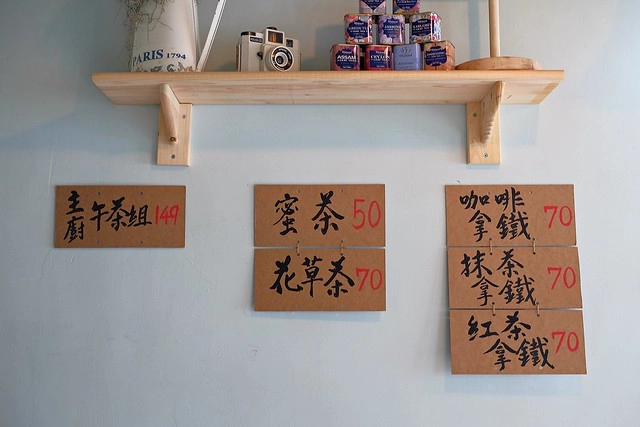 PARIS 1794
ASSAM
CEYLON
主廚午茶組 149
蜜茶 50
花草茶 70
咖啡拿鐵 70
抹茶拿鐵 70
紅茶拿鐵 70